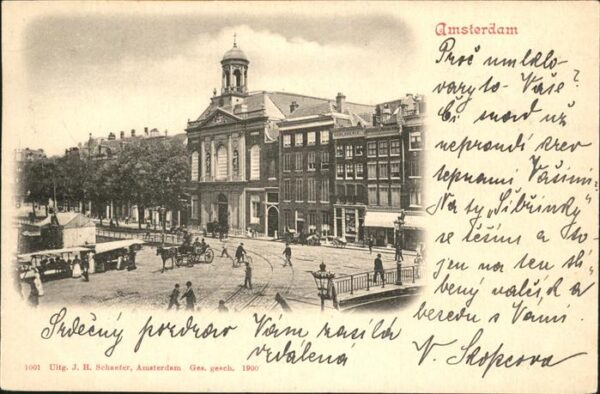 Amsterdam
Proč umlklo-
vary to - Vaše?
Či snad už
neproudí krev
tepnami Vašimi?
Na ty „Sibřinky"
se těším a to
jen na ten slí-
bený valčík a
besedu s Vámi.
Srdečný pozdrav Vám zasílá
vzdálená
V. Skopcova
1001 Uitg. J. H. Schaefer, Amsterdam Ges. gesch. 1900